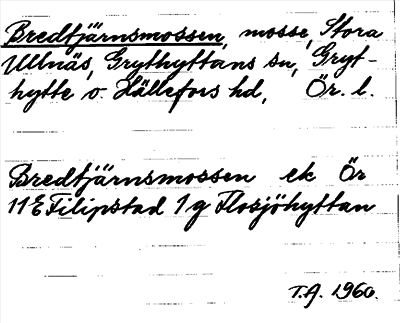 Bredtjärnsmossen, mosse, Stora
Ullnäs, Grythyttans sn, Gryt-
hytte o. Hällefors hd, Ör. l.
Bredtjärnsmossen ek Ör
11E Filipstad 1g Flosjöhyttan
T.A. 1960.